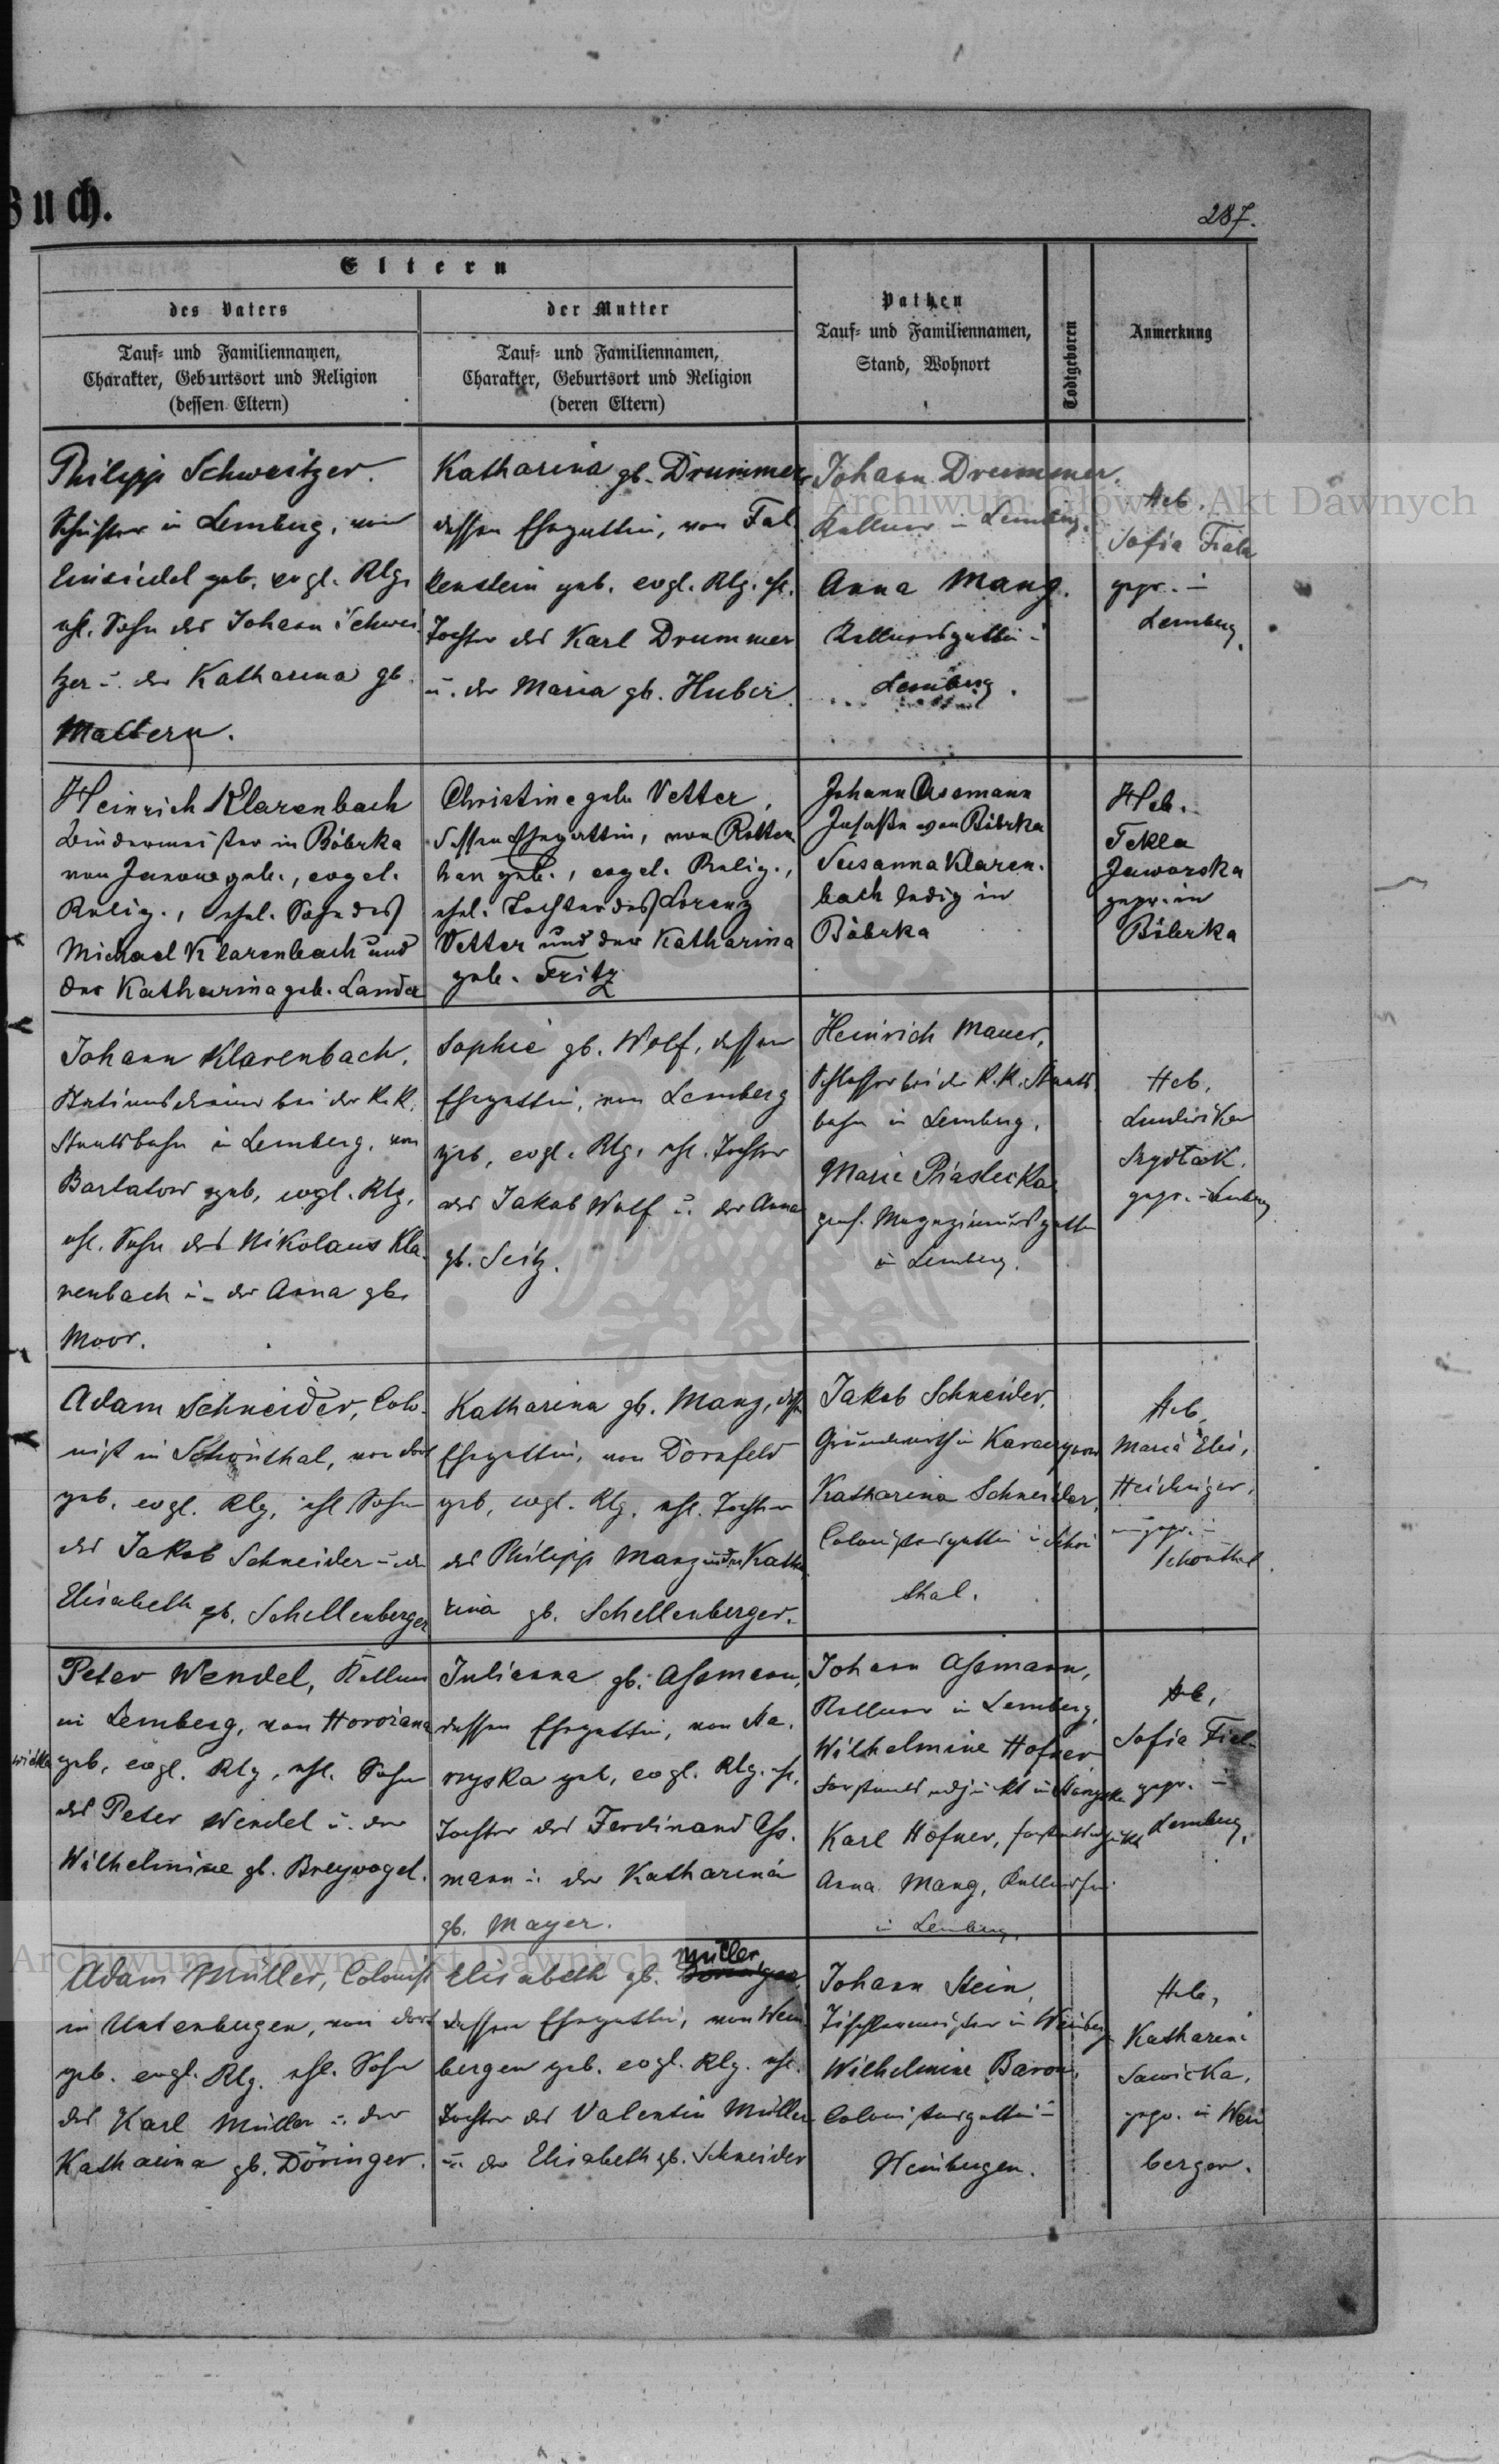 Buch.
287.
Eltern
des Vaters
Tauf- und Familiennamen,
Charakter, Geburtsort und Religion
(dessen Eltern)
der Mutter
Tauf- und Familiennamen,
Charakter, Geburtsort und Religion
(deren Eltern)
Pathen
Tauf- und Familiennamen,
Stand, Wohnort
Todtgeboren
Anmerkung
Philipp Schweitzer.
Schuster in Lemberg, von
Einsiedel geb. evgl. Rlg.
ehl. Sohn des Johann Schwei
tzer u. der Katharina gb.
Mattern.
Katharina gb. Drummer
dessen Ehegattin, von Fal
kenstein geb. evgl. Rlg. ehl.
Tochter des Karl Drummer
u. der Maria gb. Huber
Johann Drummer.
Kellner in Lemberg.
Anna Mang.
Kellnersgattin in
Lemberg.
Heb.
Sofia Fiala
gepr. in
Lemberg.
Heinrich Klarenbach
Bindermeister in Bóbrka
von Janow geb., evgel.
Relig., ehel. Sohn des
Michael Klarenbach und
der Katharina geb. Lander
Christine geb. Vetter,
dessen Ehegattin, von Rotten
han geb., evgel. Relig.,
ehel. Tochter des Lorenz
Vetter und der Katharina
geb. Fritz
Johann Assmann
Insasse von Bóbrka
Susanna Klaren-
bach ledig in
Bóbrka
Heb.
Tekla
Jaworska
gepr. in
Bóbrka
Johann Klarenbach,
Stationsdiener bei der K.K.
Staatsbahn in Lemberg, von
Bartatow geb, evgl. Rlg.
ehl. Sohn des Nikolaus Kla-
renbach u. der Anna gb.
Moor.
Sophie gb. Wolf, dessen
Ehegattin, von Lemberg
geb, evgl. Rlg. ehl. Tochter
des Jakob Wolf u. der Anna
gb. Seitz.
Heinrich Mauer,
Schlosser bei der K.K. Staats
bahn in Lemberg,
Marie Piaslecka
Magazineursgattin
in Lemberg.
Heb.
Ludwika
gepr. in Lemberg
Adam Schneider, Colo-
nist in Schönthal, von dort
geb. evgl. Rlg, ehl Sohn
des Jakob Schneider u. der
Elisabeth gb. Schellenberger
Katharina gb. Mang, dessen
Ehegattin, von Dornfeld
geb, evgl. Rlg. ehl. Tochter
des Philipp Mang und der Katha
rina gb. Schellenberger.
Jakob Schneider,
Grundwirth in
Katharina Schneider,
Colonistensgattin in Schön
thal.
Heb.
Maria Elis.
Heidinger,
ungepr. in
Schönthal.
Peter Wendel, Kellner
in Lemberg, von Horozana
wielka geb, evgl. Rlg, ehl. Sohn
des Peter Wendel u. der
Wilhelmine gb. Breyvogel.
Julianna gb. Assmann,
dessen Ehegattin, von Sta-
rzyska geb, evgl. Rlg. ehl.
Tochter des Ferdinand Ass-
mann u. der Katharina
gb. Mayer.
Johann Assmann,
Kellner in Lemberg,
Wilhelmine Hofner
Karl Hofner,
Anna Mang,
in Lemberg.
Heb.
Sofia Fiala
gepr. in
Lemberg.
Adam Müller, Colonist
in Unterbergen, von dort
geb. evgl. Rlg. ehl. Sohn
des Karl Müller u. der
Katharina gb. Döringer.
Elisabeth gb. Müller
dessen Ehegattin, von Wein
bergen geb. evgl. Rlg. ehl.
Tochter des Valentin Müller
u. der Elisabeth gb. Schneider
Johann Stein,
Tischlermeister in Weinberg
Wilhelmine Baron,
Colonistensgattin in
Weinbergen.
Heb.
Katharina
Sawicka,
gepr. in Wein
bergen.
Archiwum Główne Akt Dawnych
Archiwum Główne Akt Dawnych